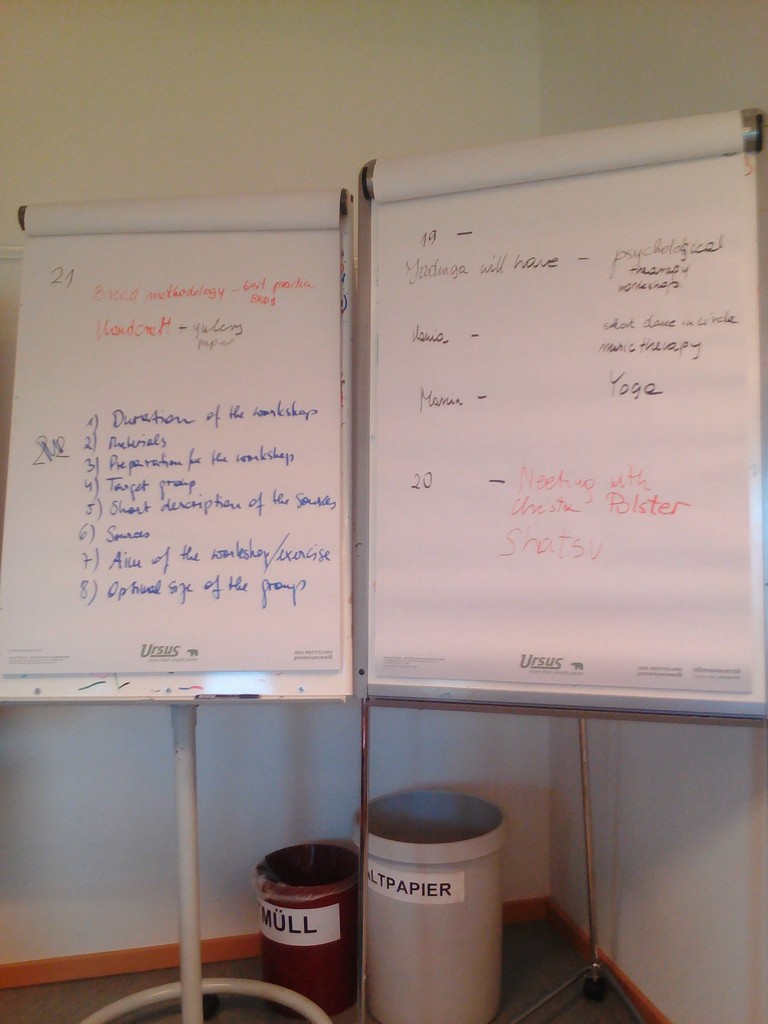 21
Bread methodology - best practice
Handcraft +
paper
1) Duration of the workshop
2) Materials
3) Preparation for the workshop
4) Target group
5) Short description of the sources
6) Sources
7) Aim of the workshop/exercise
8) Optimal size of the group
Ursus
19 -
Jadvyga will have - psychological
therapy
workshops
short dance in circle
music therapy
Yoga
20 - Meeting with
Christa Polster
Shatsu
Ursus
MÜLL
ALTPAPIER